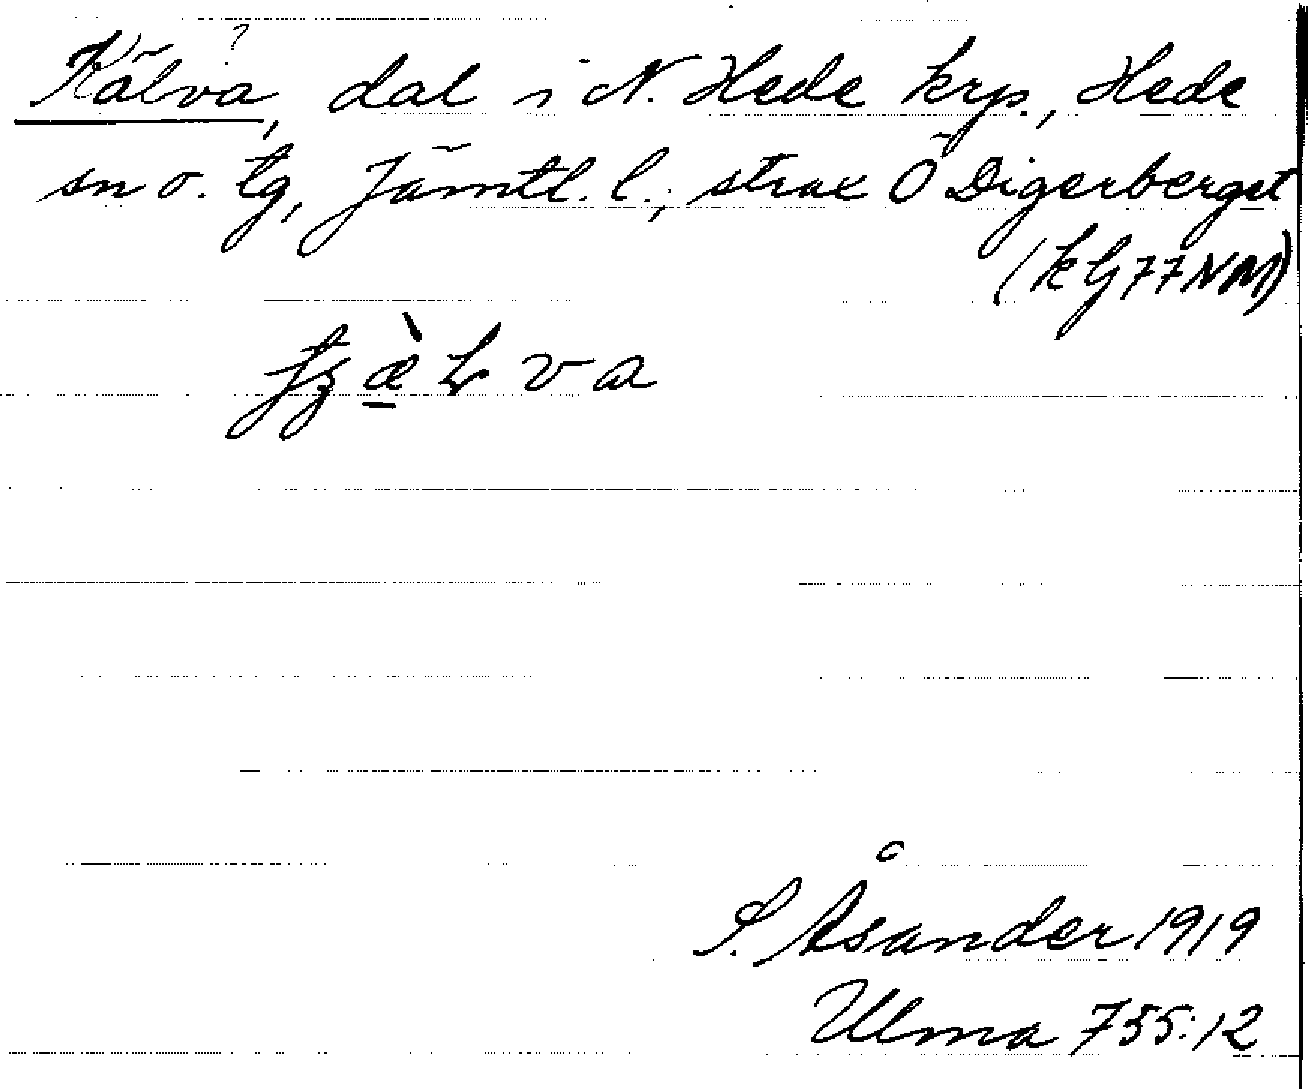 Kälva?, dal i N. Hede krp., Hede
sn o. tg, Jämtl. l.; strax Ö Digerberget
(k G 77 NM)
S. Åsander 1919
Ulma 755:12